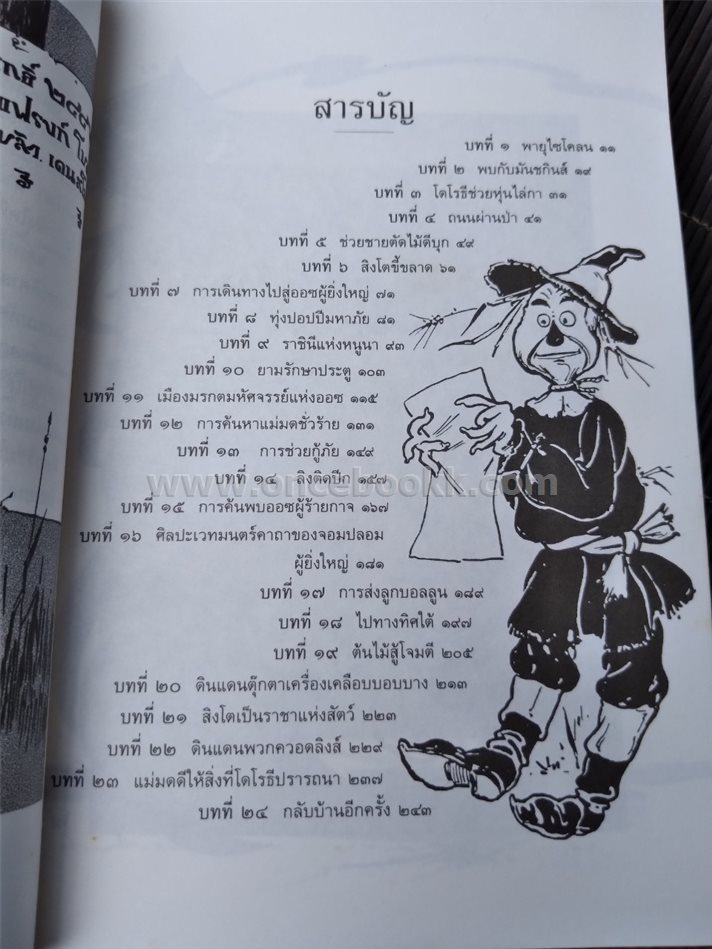 สารบัญ
บทที่ ๑ พายุไซโคลน ๑๑
บทที่ ๒ พบกับมันชกินส์ ๑๙
บทที่ ๓ โดโรธีช่วยหุ่นไล่กา ๓๑
บทที่ ๔ ถนนผ่านป่า ๔๑
บทที่ ๕ ช่วยชายตัดไม้ดีบุก ๔๙
บทที่ ๖ สิงโตขี้ขลาด ๖๑
บทที่ ๗ การเดินทางไปสู่ออซผู้ยิ่งใหญ่ ๗๑
บทที่ ๘ ทุ่งปอปปีมหาภัย ๘๑
บทที่ ๙ ราชินีแห่งหนูนา ๙๓
บทที่ ๑๐ ยามรักษาประตู ๑๐๓
บทที่ ๑๑ เมืองมรกตมหัศจรรย์แห่งออซ ๑๑๕
บทที่ ๑๒ การค้นหาแม่มดชั่วร้าย ๑๓๑
บทที่ ๑๓ การช่วยกู้ภัย ๑๔๙
บทที่ ๑๔ ลิงติดปีก ๑๕๗
www.oncebookk.com
บทที่ ๑๕ การค้นพบออซผู้ร้ายกาจ ๑๖๗
บทที่ ๑๖ ศิลปะเวทมนตร์คาถาของจอมปลอม
ผู้ยิ่งใหญ่ ๑๘๑
บทที่ ๑๗ การส่งลูกบอลลูน ๑๘๙
บทที่ ๑๘ ไปทางทิศใต้ ๑๙๗
บทที่ ๑๙ ต้นไม้สู้โจมตี ๒๐๕
บทที่ ๒๐ ดินแดนตุ๊กตาเครื่องเคลือบบอบบาง ๒๑๓
บทที่ ๒๑ สิงโตเป็นราชาแห่งสัตว์ ๒๒๓
บทที่ ๒๒ ดินแดนพวกควอดลิงส์ ๒๒๙
บทที่ ๒๓ แม่มดดีให้สิ่งที่โดโรธีปรารถนา ๒๓๗
บทที่ ๒๔ กลับบ้านอีกครั้ง ๒๔๓